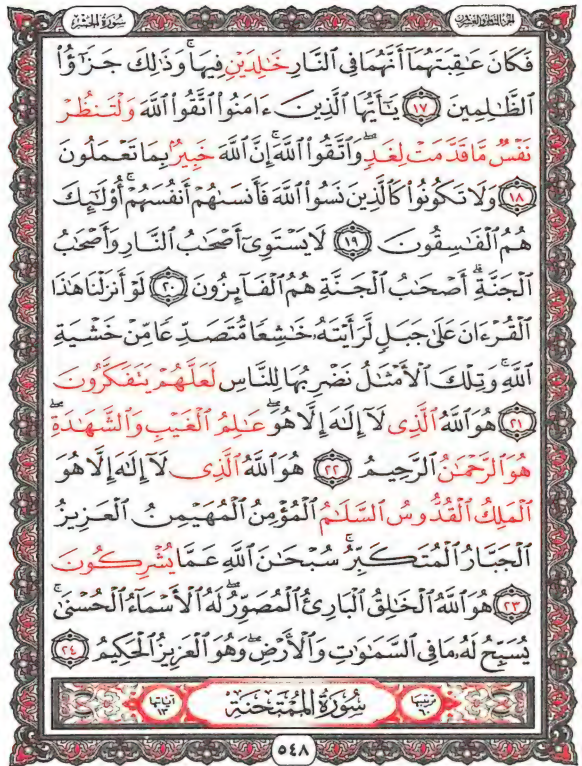 سُورَةُ الحَشْرِ
الجزء الثامن والعشرون
فَكَانَ عَٰقِبَتَهُمَآ أَنَّهُمَا فِي ٱلنَّارِ خَٰلِدَيْنِ فِيهَاۚ وَذَٰلِكَ جَزَٰٓؤُاْ
ٱلظَّٰلِمِينَ ١٧ يَٰٓأَيُّهَا ٱلَّذِينَ ءَامَنُواْ ٱتَّقُواْ ٱللَّهَ وَلْتَنظُرْ
نَفْسٌ مَّا قَدَّمَتْ لِغَدٍۖ وَٱتَّقُواْ ٱللَّهَۚ إِنَّ ٱللَّهَ خَبِيرٌۢ بِمَا تَعْمَلُونَ
١٨ وَلَا تَكُونُواْ كَٱلَّذِينَ نَسُواْ ٱللَّهَ فَأَنسَىٰهُمْ أَنفُسَهُمْۚ أُوْلَٰٓئِكَ
هُمُ ٱلْفَٰسِقُونَ ١٩ لَا يَسْتَوِيٓ أَصْحَٰبُ ٱلنَّارِ وَأَصْحَٰبُ
ٱلْجَنَّةِۚ أَصْحَٰبُ ٱلْجَنَّةِ هُمُ ٱلْفَآئِزُونَ ٢٠ لَوْ أَنزَلْنَا هَٰذَا
ٱلْقُرْءَانَ عَلَىٰ جَبَلٍ لَّرَأَيْتَهُۥ خَٰشِعًا مُّتَصَدِّعًا مِّنْ خَشْيَةِ
ٱللَّهِۚ وَتِلْكَ ٱلْأَمْثَٰلُ نَضْرِبُهَا لِلنَّاسِ لَعَلَّهُمْ يَتَفَكَّرُونَ
٢١ هُوَ ٱللَّهُ ٱلَّذِي لَآ إِلَٰهَ إِلَّا هُوَۖ عَٰلِمُ ٱلْغَيْبِ وَٱلشَّهَٰدَةِۖ
هُوَ ٱلرَّحْمَٰنُ ٱلرَّحِيمُ ٢٢ هُوَ ٱللَّهُ ٱلَّذِي لَآ إِلَٰهَ إِلَّا هُوَ
ٱلْمَلِكُ ٱلْقُدُّوسُ ٱلسَّلَٰمُ ٱلْمُؤْمِنُ ٱلْمُهَيْمِنُ ٱلْعَزِيزُ
ٱلْجَبَّارُ ٱلْمُتَكَبِّرُۚ سُبْحَٰنَ ٱللَّهِ عَمَّا يُشْرِكُونَ
٢٣ هُوَ ٱللَّهُ ٱلْخَٰلِقُ ٱلْبَارِئُ ٱلْمُصَوِّرُۖ لَهُ ٱلْأَسْمَآءُ ٱلْحُسْنَىٰۚ
يُسَبِّحُ لَهُۥ مَا فِي ٱلسَّمَٰوَٰتِ وَٱلْأَرْضِۖ وَهُوَ ٱلْعَزِيزُ ٱلْحَكِيمُ ٢٤
ترتيبها ٦٠ سُورَةُ المُمْتَحنَةِ آياتها ١٣
٥٤٨